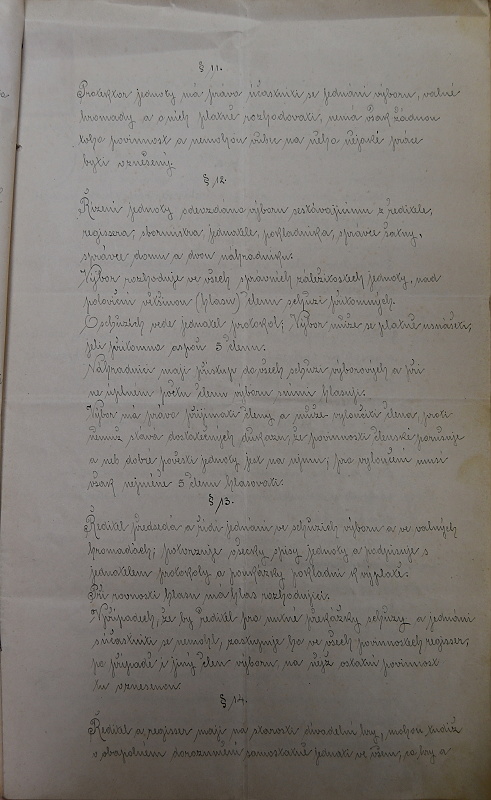 § 11.
Protektor jednoty má právo účastniti se jednání výboru, valné
hromady a o nich platně rozhodovati, nemá však žádnou
toho povinnost a nemohou vůbec na něho nějaké práce
býti vznešeny.
§ 12.
Řízení jednoty odevzdáno výboru sestávajícímu z ředitele,
regissera, sbormistra, jednatele, pokladníka, správce šatny,
správce domu a dvou náhradníků.
Výbor rozhoduje ve všech správních záležitostech jednoty, nad
poloviční většinou (hlasů) členů schůzi přítomných.
O schůzích vede jednatel protokol; Výbor může se platně usnášeti,
jeli přítomno aspoň 5 členů.
Náhradníci mají přístup do všech schůzí výborových a při
ne úplném počtu členů výboru snimi hlasují.
Výbor má právo přijímati členy a může vyloučiti člena, proti
němuž stává dostatečných důkazů, že povinnosti členské porušuje
a neb dobré pověsti jednoty jest na újmu; pro vyloučení musí
však nejméně 5 členů hlasovati.
§ 13.
Ředitel předsedá a řídí jednání ve schůzích výboru a ve valných
hromadách; potvrzuje všecky spisy jednoty a podpisuje s
jednatelem protokoly a poukázky pokladní k výplatě.
Při rovnosti hlasů má hlas rozhodující.
V případech, že by ředitel pro nutné překážky schůzy a jednání
súčastniti se nemohl, zastupuje ho ve všech povinnostech regisser,
po případě i jiný člen výboru, na nějž ostatní povinnost
tu vznesenou.
§ 14.
Ředitel a regisser mají na starosti divadelní hry, mohou tudíž
o obapolném dorozumění samostatně jednati ve všem, co hry a